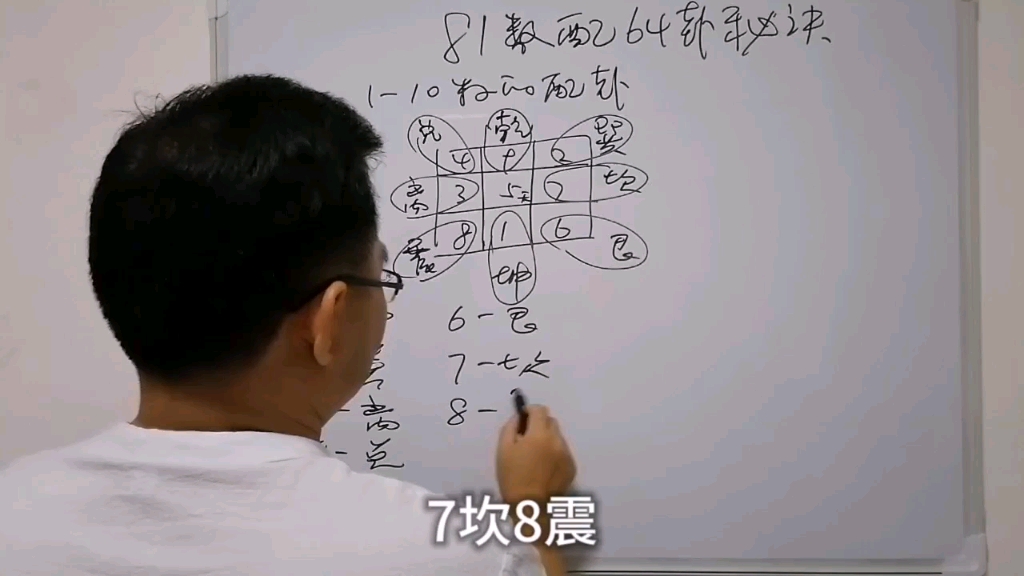 81数配64卦秘诀
1-10数的配卦
兑 乾 巽
4 9 2
离 3 5 7 坎
震 8 1 6 艮
坤
6-艮
7-坎
离 8-
-兑
7坎8震